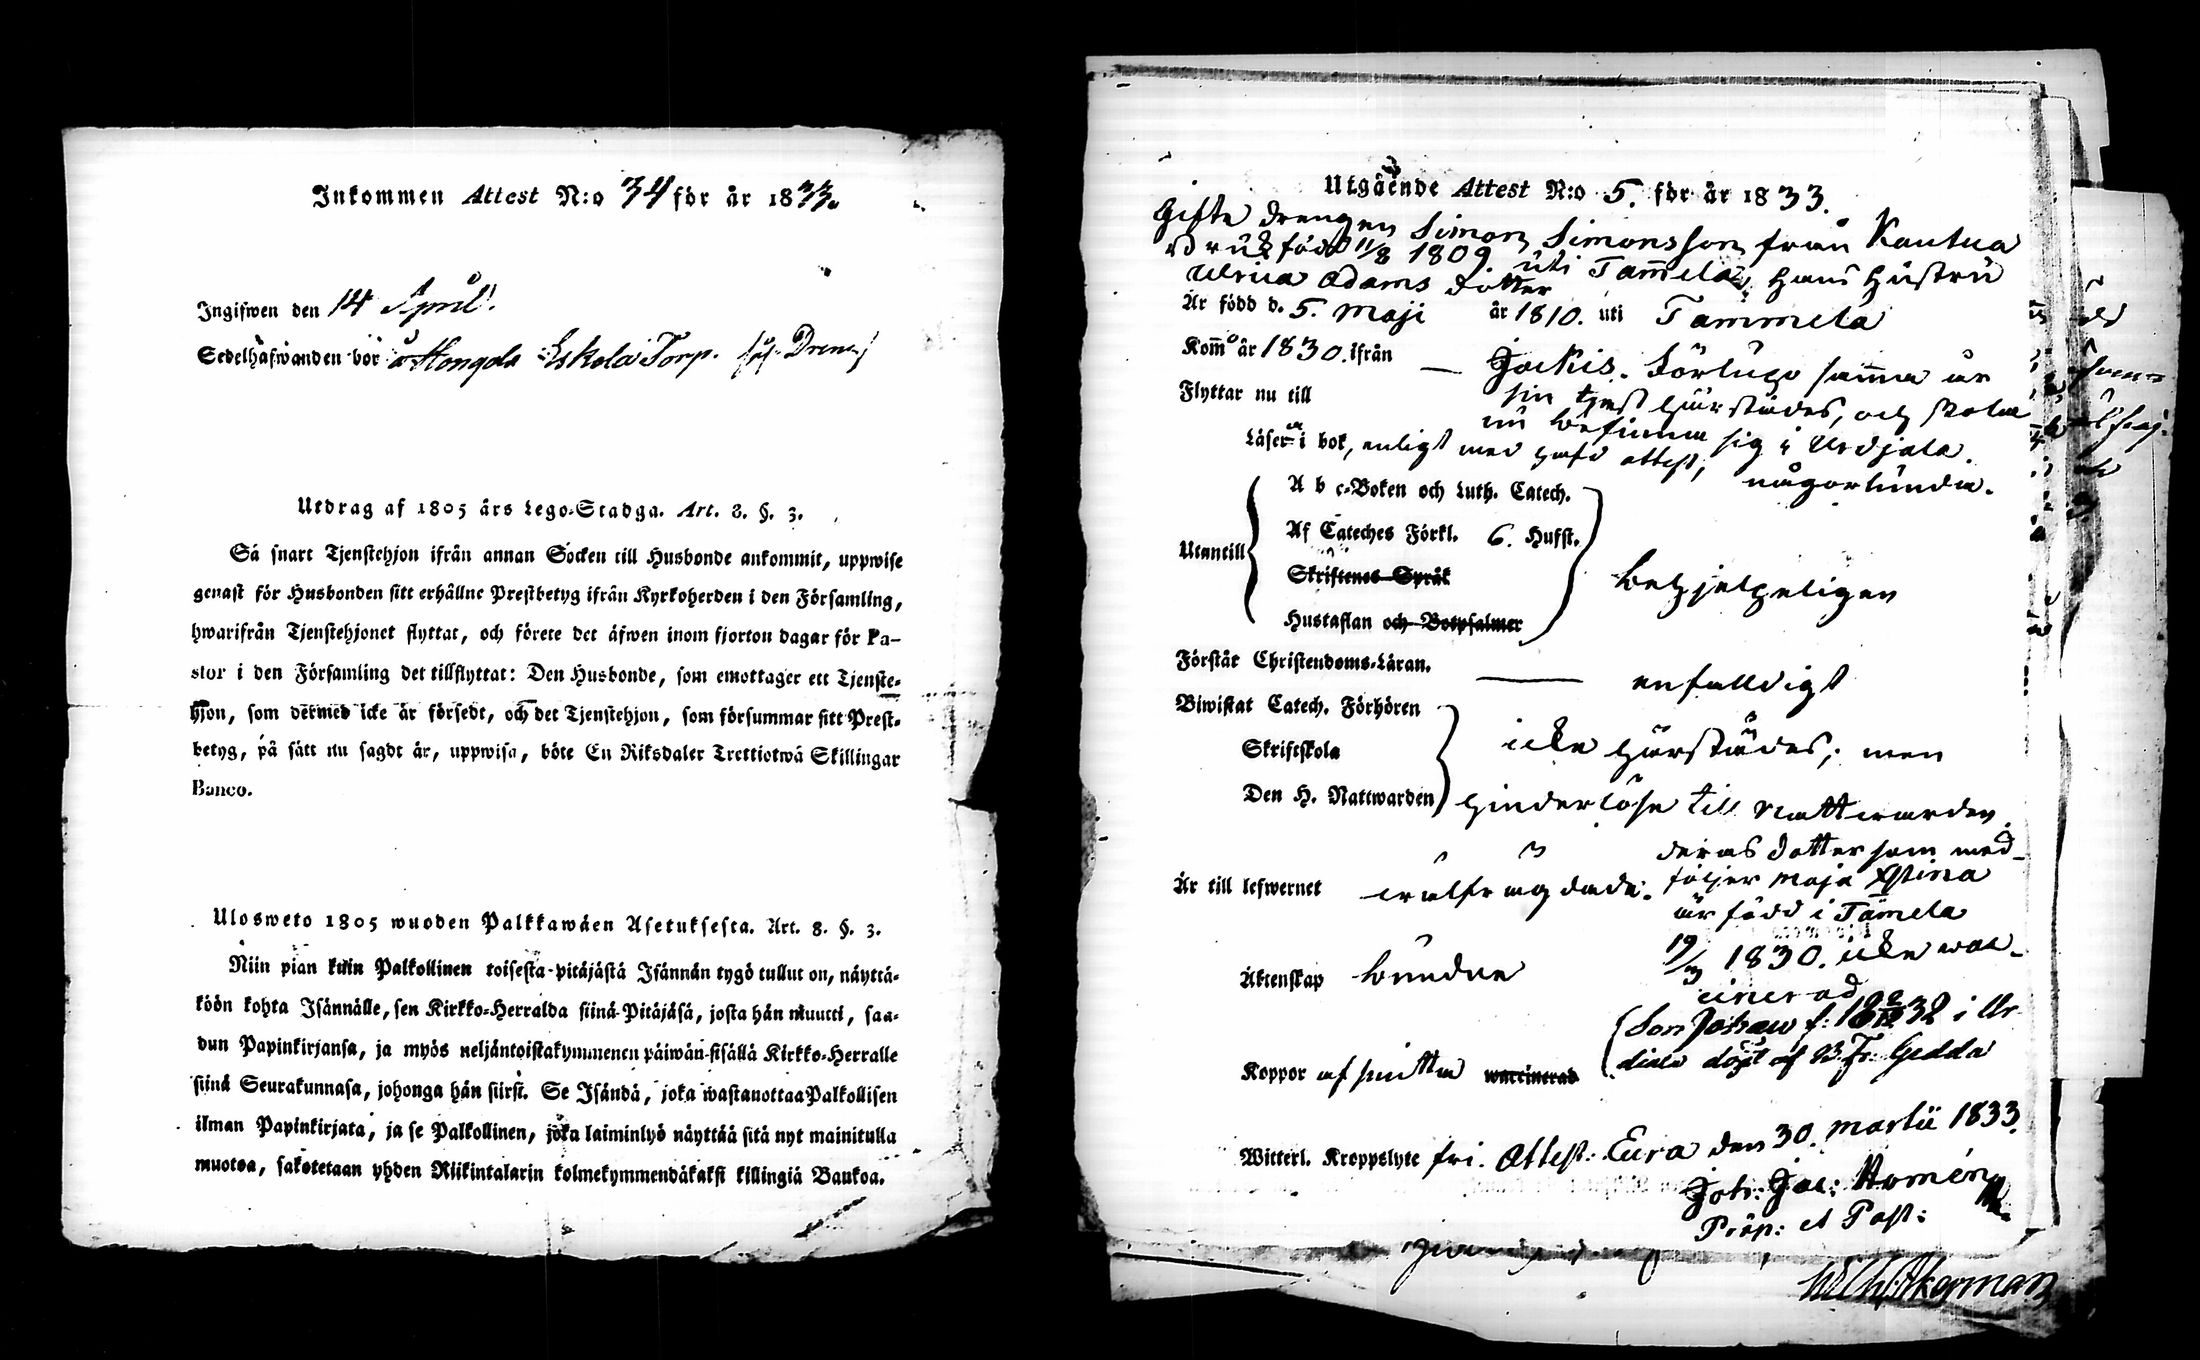 Inkommen Attest N:o 34 för år 1833.
Ingifwen den 14 April.
Sedelhafwanden bor å Hongola Eskola Torp.
Utdrag af 1805 års Lego-Stadga. Art. 8. §. 3.
Så snart Tjenstehjon ifrån annan Socken till Husbonde ankommit, uppwise
genast för Husbonden sitt erhållne Prestbetyg ifrån Kyrkoherden i den Församling,
hwarifrån Tjenstehjonet flyttat, och förete det äfwen inom fjorton dagar för Pa-
stor i den Församling det tillflyttat: Den Husbonde, som emottager ett Tjenste-
hjon, som dermed icke är försedt, och det Tjenstehjon, som försummar sitt Prest-
betyg, på sätt nu sagdt är, uppwisa, böte En Riksdaler Trettiotwå Skillingar
Banco.
Ulosweto 1805 wuoden Palkkawäen Asetuksesta. Art. 8. §. 3.
Niin pian kuin Palkollinen toisesta pitäjästä Isännän tygö tullut on, näyttä-
köön kohta Isännälle, sen Kirkko-Herralda siinä Pitäjäsä, josta hän muutti, saa-
dun Papinkirjansa, ja myös neljäntoistakymmenen päiwän sisällä Kirkko-Herralle
siinä Seurakunnasa, johonga hän siirst. Se Isändä, joka wastanottaa Palkollisen
ilman Papinkirjata, ja se Palkollinen, joka laiminlyö näyttää sitä nyt mainitulla
muotoa, sakotetaan yhden Riikintalarin kolmekymmendäkaksi killingiä Baukoa.
Utgående Attest N:o 5. för år 1833.
Gifte drengen Simon Simonsson från Kautua
bruk född 11/8 1809. uti Tammela, hans hustru
Ulrica Adams dotter
Är född d. 5. Maji år 1810. uti Tammela
Kom̄o år 1830. ifrån — Jockis. Förlupo samma år
Flyttar nu till sin tjenst härstädes, och skola
nu befinna sig i Urdjala.
Läser i bok, enligt med hafd attest, någorlunda.
A b c-Boken och Luth. Catech.
Af Cateches Förkl. 6. Hufst.
Utantill
Skriftenes Språk
behjelpeligen
Hustaflan och Botpsalmer
Förstår Christendoms-Läran. — enfalldigt
Biwistat Catech. Förhören
Skriftskola icke härstädes; men
Den H. Nattwarden hinderlöse till Nattwarden.
deras dotter som med-
Är till lefwernet oculfragdade. följer Maja Stina
är född i Tam̄ela
19/3 1830. icke vac-
cinerad
Äktenskap bundne
(Son Johan f: 32 i Ur
diala döpt af V. Fr. Gedda
Koppor afhuittna waccinerad
Witterl. Kroppslyte fri. Attest: Eura den 30. Martii 1833.
Joh: Jac: Homén
Prop: et Past:
Åkerman